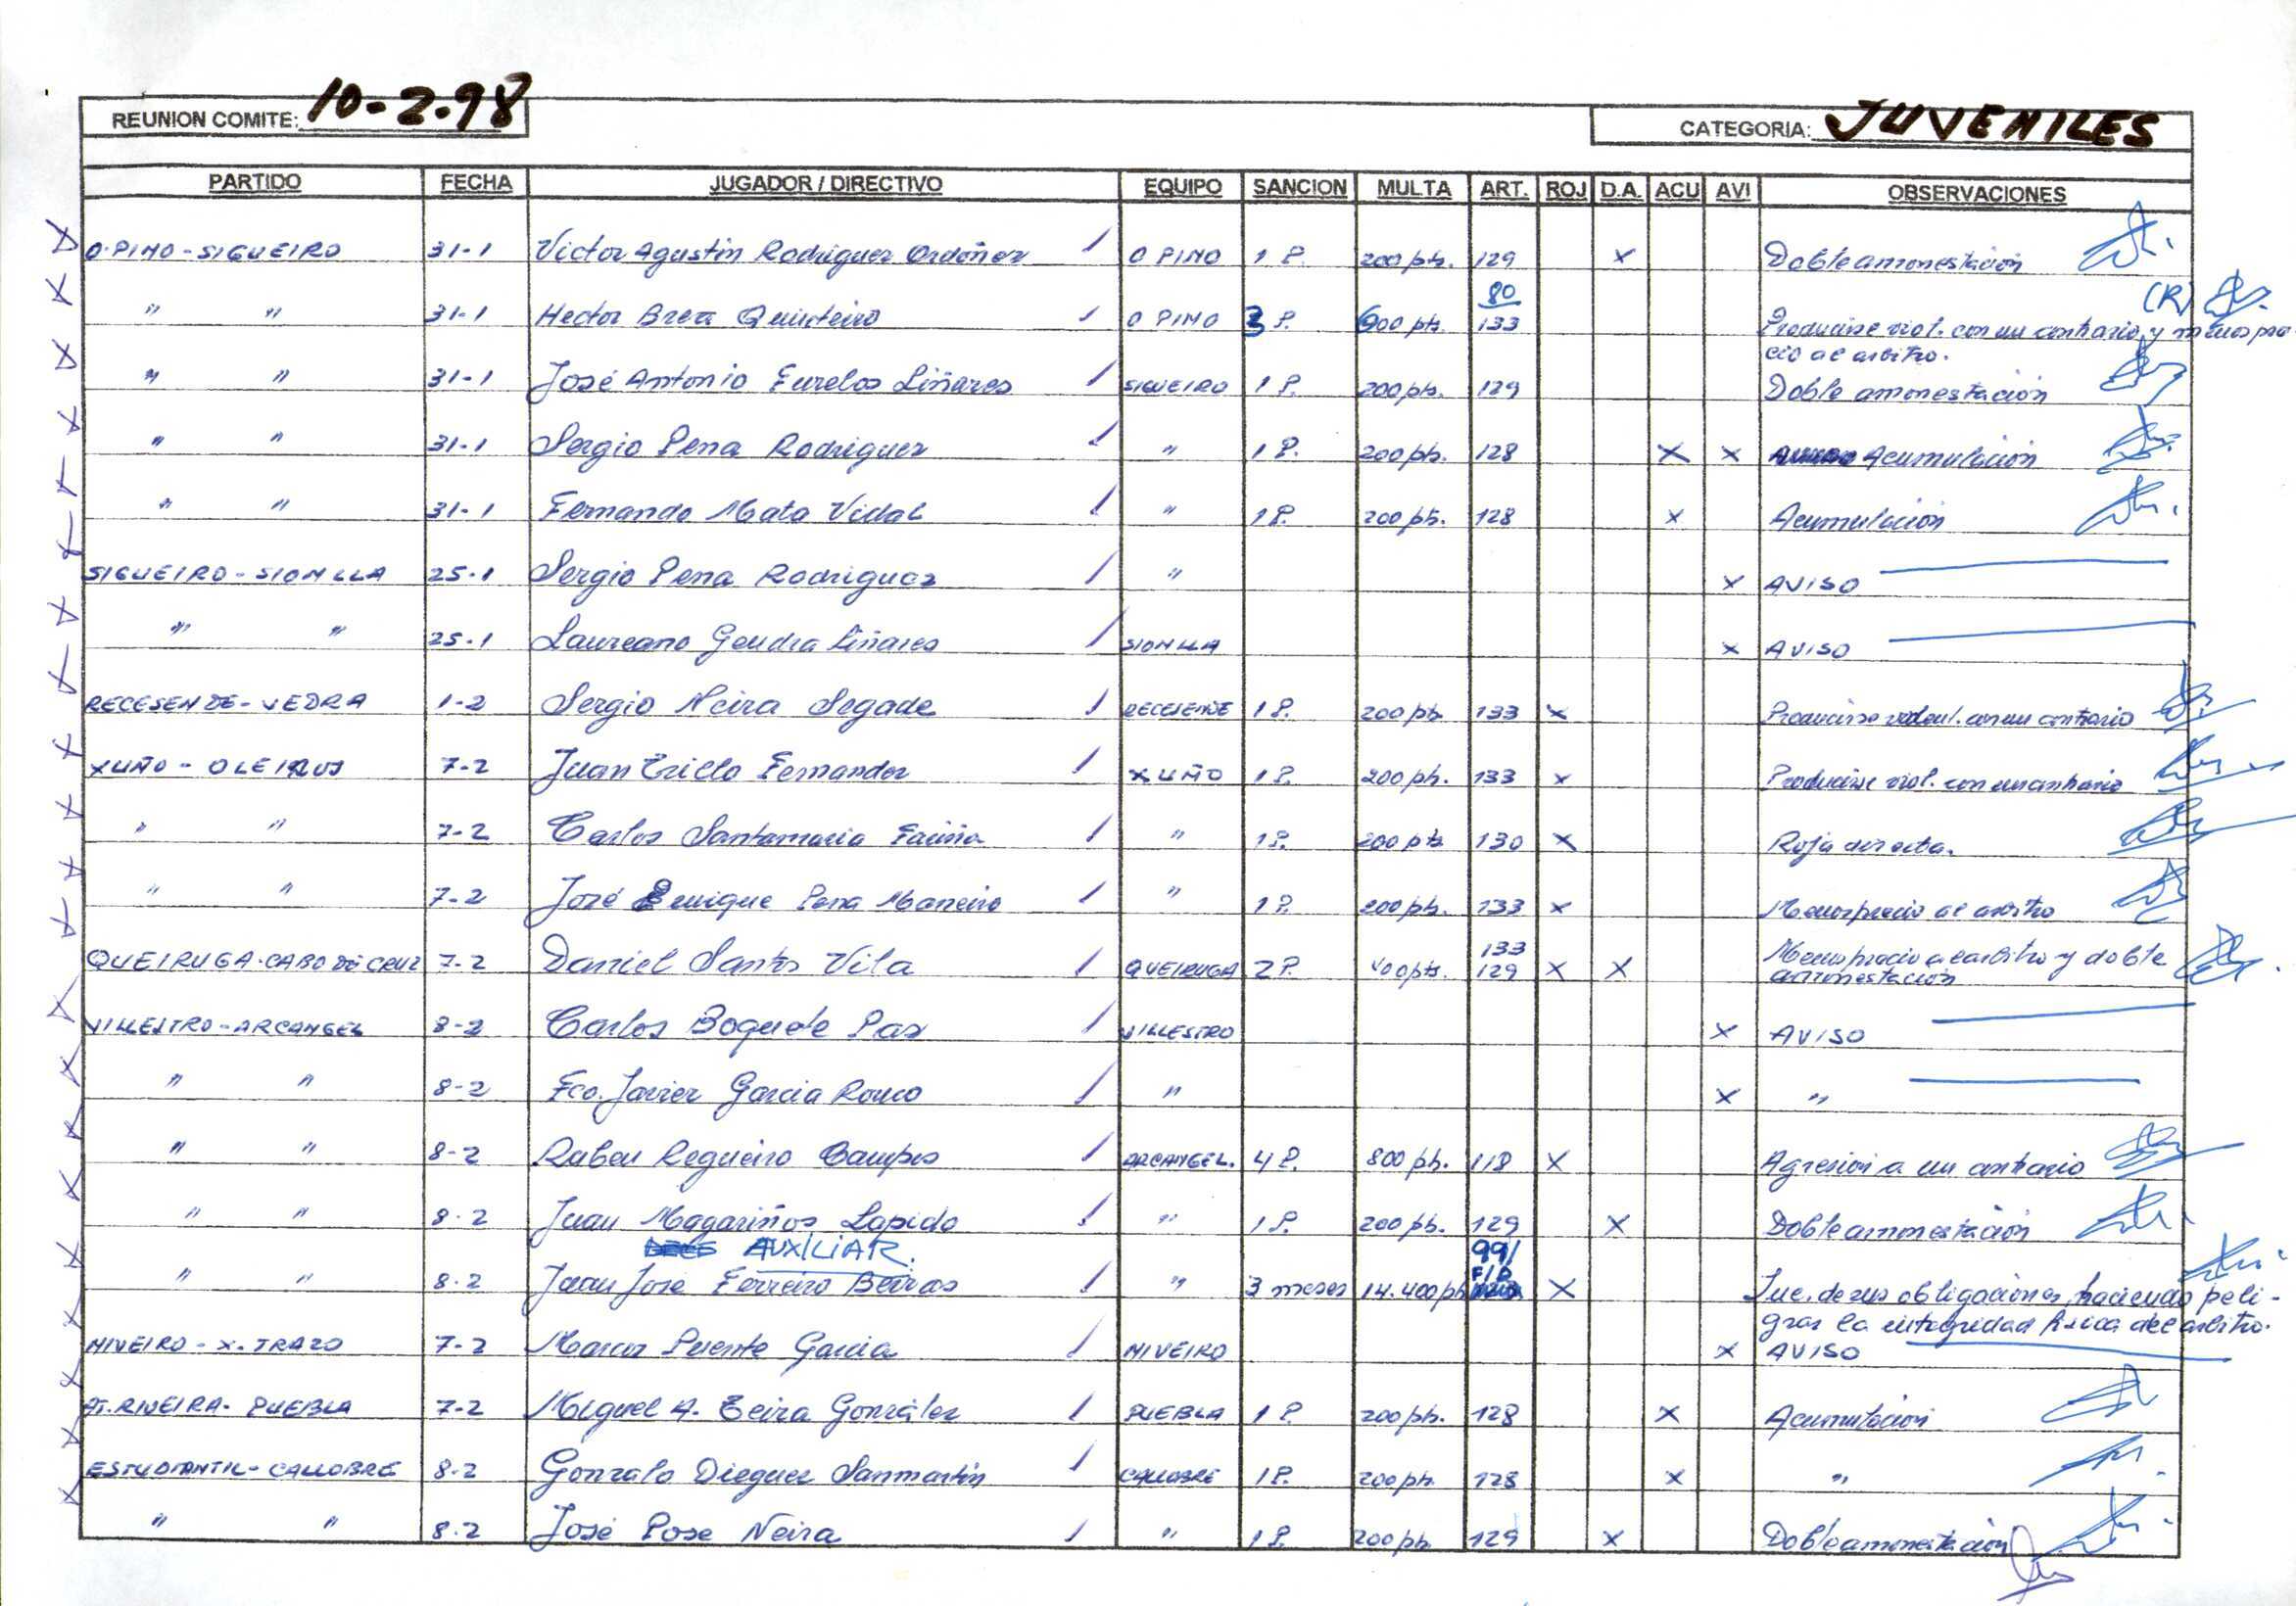 REUNION COMITE: 10-2-98
CATEGORIA: JUVENILES
PARTIDO FECHA JUGADOR / DIRECTIVO EQUIPO SANCION MULTA ART. ROJ D.A. ACU AVI OBSERVACIONES
O PINO - SIGUEIRO 31-1 Victor Agustin Rodriguez Ordoñez O PINO 1 P. 200 pts. 129 X Doble amonestación
80 (R)
" " 31-1 Hector Brea Quinteiro O PINO 3 P. 600 pts. 133 Producirse viol. con un contrario y menospre-
cio al arbitro.
" " 31-1 José Antonio Furelos Liñares SIGUEIRO 1 P. 200 pts. 129 Doble amonestación
" " 31-1 Sergio Pena Rodriguez " 1 P. 200 pts. 128 X X Acumulación
" " 31-1 Fernando Mata Vidal " 1 P. 200 pts. 128 X Acumulación
SIGUEIRO - SIONLLA 25-1 Sergio Pena Rodriguez " X AVISO
" " 25-1 Laureano Gendra Liñares SIONLLA X AVISO
RECESENDE - VEDRA 1-2 Sergio Neira Segade RECESENDE 1 P. 200 pts. 133 X Producirse violent. con un contrario
XUÑO - OLEIROS 7-2 Juan Trillo Fernandez XUÑO 1 P. 200 pts. 133 X Producirse viol. con un contrario
" " 7-2 Carlos Santamaria Fariña " 1 P. 200 pts 130 X Roja directa.
" " 7-2 José Enrique Pena Maneiro " 1 P. 200 pts. 133 X Menosprecio al arbitro
133 Menosprecio al arbitro y doble
QUEIRUGA - CABO DE CRUZ 7-2 Daniel Santos Vila QUEIRUGA 2 P. 400 pts. 129 X X amonestación
VILLESTRO - ARCANGEL 8-2 Carlos Boquete Paz VILLESTRO X AVISO
" " 8-2 Fco. Javier Garcia Rouco " X "
" " 8-2 Ruben Regueiro Campos ARCANGEL. 4 P. 800 pts. 118 X Agresión a un contrario
" " 8-2 Juan Magariños Lapido " 1 P. 200 pts. 129 X Doble amonestación
AUXILIAR. 99/
" " 8-2 Juan José Ferreiro Beiras " 3 meses 14.400 pts X Inc. de sus obligaciones, haciendo peli-
grar la integridad fisica del arbitro.
NIVEIRO - X. TRAZO 7-2 Marcos Puente Garcia NIVEIRO X AVISO
AT. RIVEIRA - PUEBLA 7-2 Miguel A. Teira González PUEBLA 1 P. 200 pts. 128 X Acumulación
ESTUDIANTIL - CALLOBRE 8-2 Gonzalo Dieguez Sanmartín CALLOBRE 1 P. 200 pts. 128 X "
" " 8-2 José Pose Neira " 1 P. 200 pts. 129 X Doble amonestación